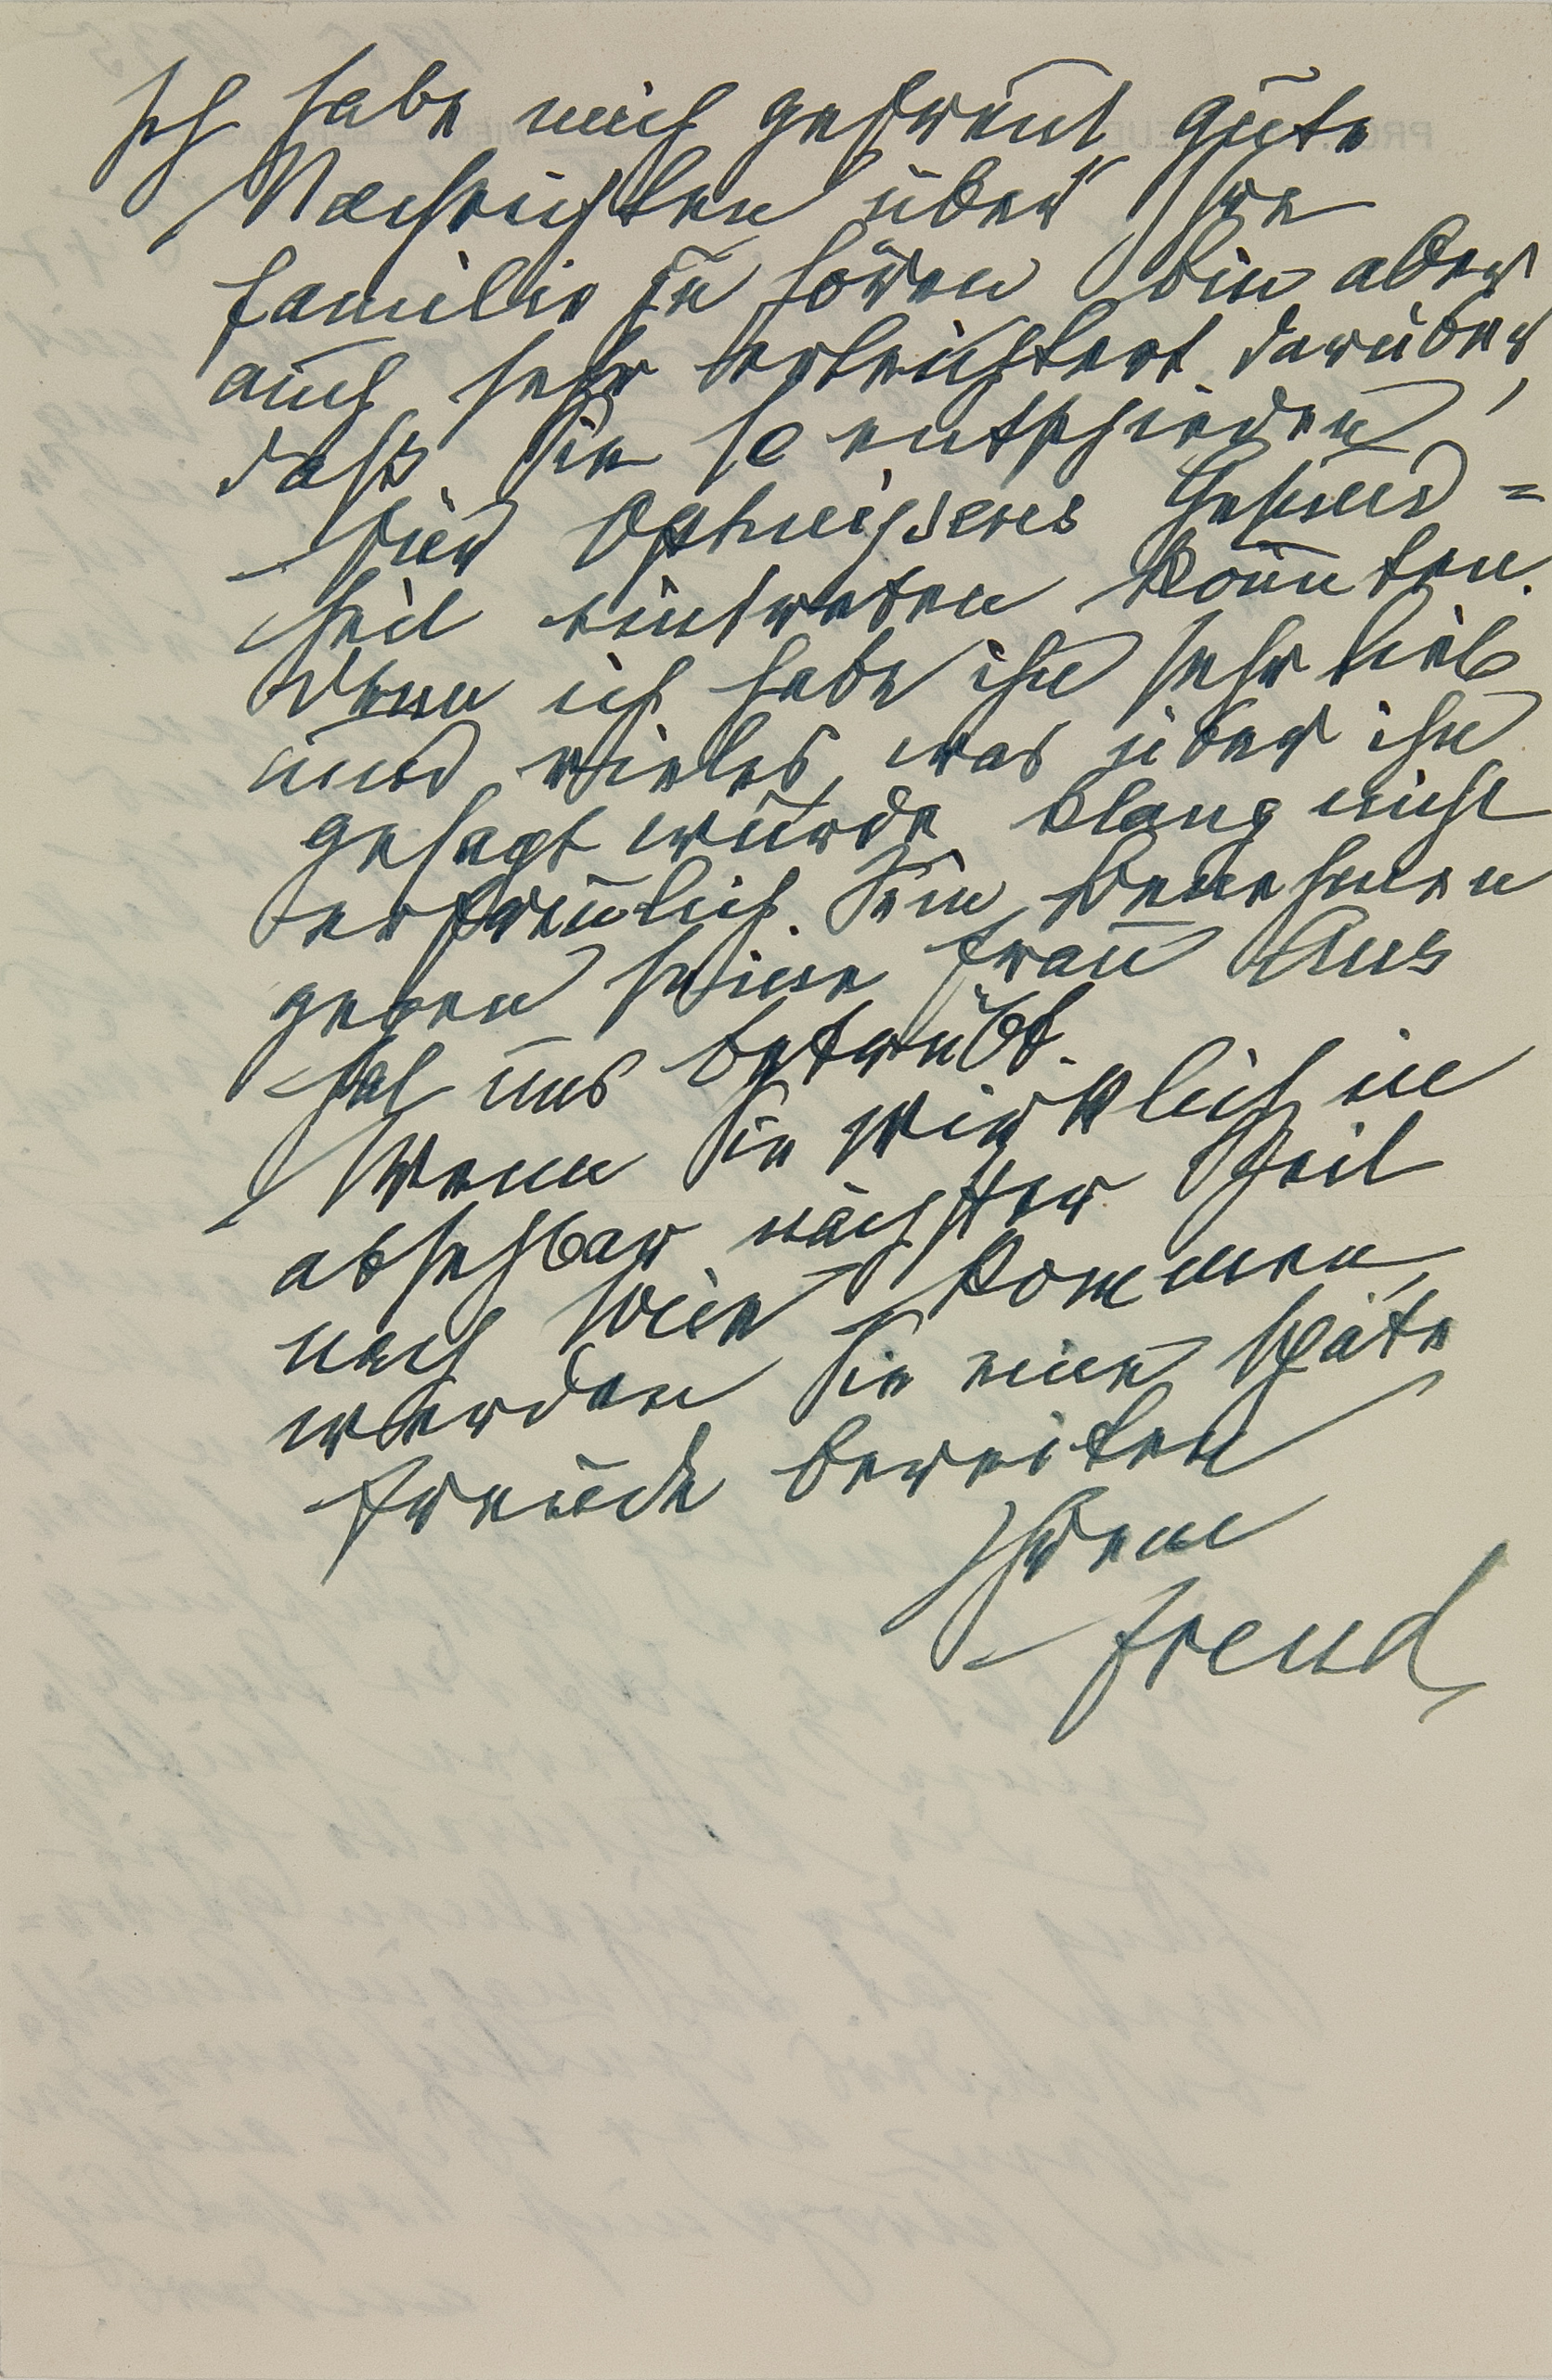 Ich habe mich gefreut gute
Nachrichten über Ihre
Familie zu hören bin aber
auch sehr erleichtert darüber,
daß Sie so entschieden
für Ophuijsens Gesund=
heit eintreten konnten.
Denn ich habe ihn sehr lieb
und vieles, was über ihn
gesagt wurde klang nicht
erfreulich. Sein Benehmen
gegen seine Frau
hat uns betrübt.
Wenn Sie wirklich in
absehbar nächster Zeit
nach Wien kommen,
werden Sie eine späte
Freude bereiten
Ihrem
Freud